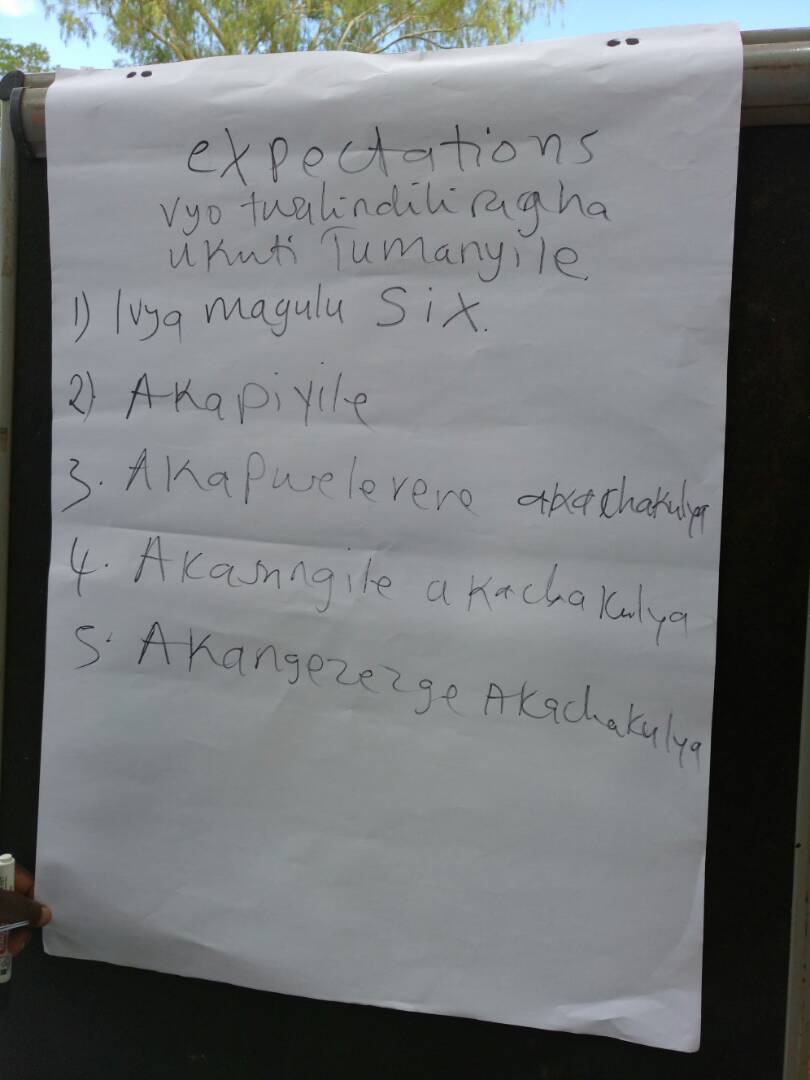 expectations
vyo twalindiliragha
ukuti Tumanyile
1) Ivya magulu Six.
2) Akapiyile
3. Akapwelerere akachakulya
4. Akasungile akachakulya
5. Akangezezge Akachakulya